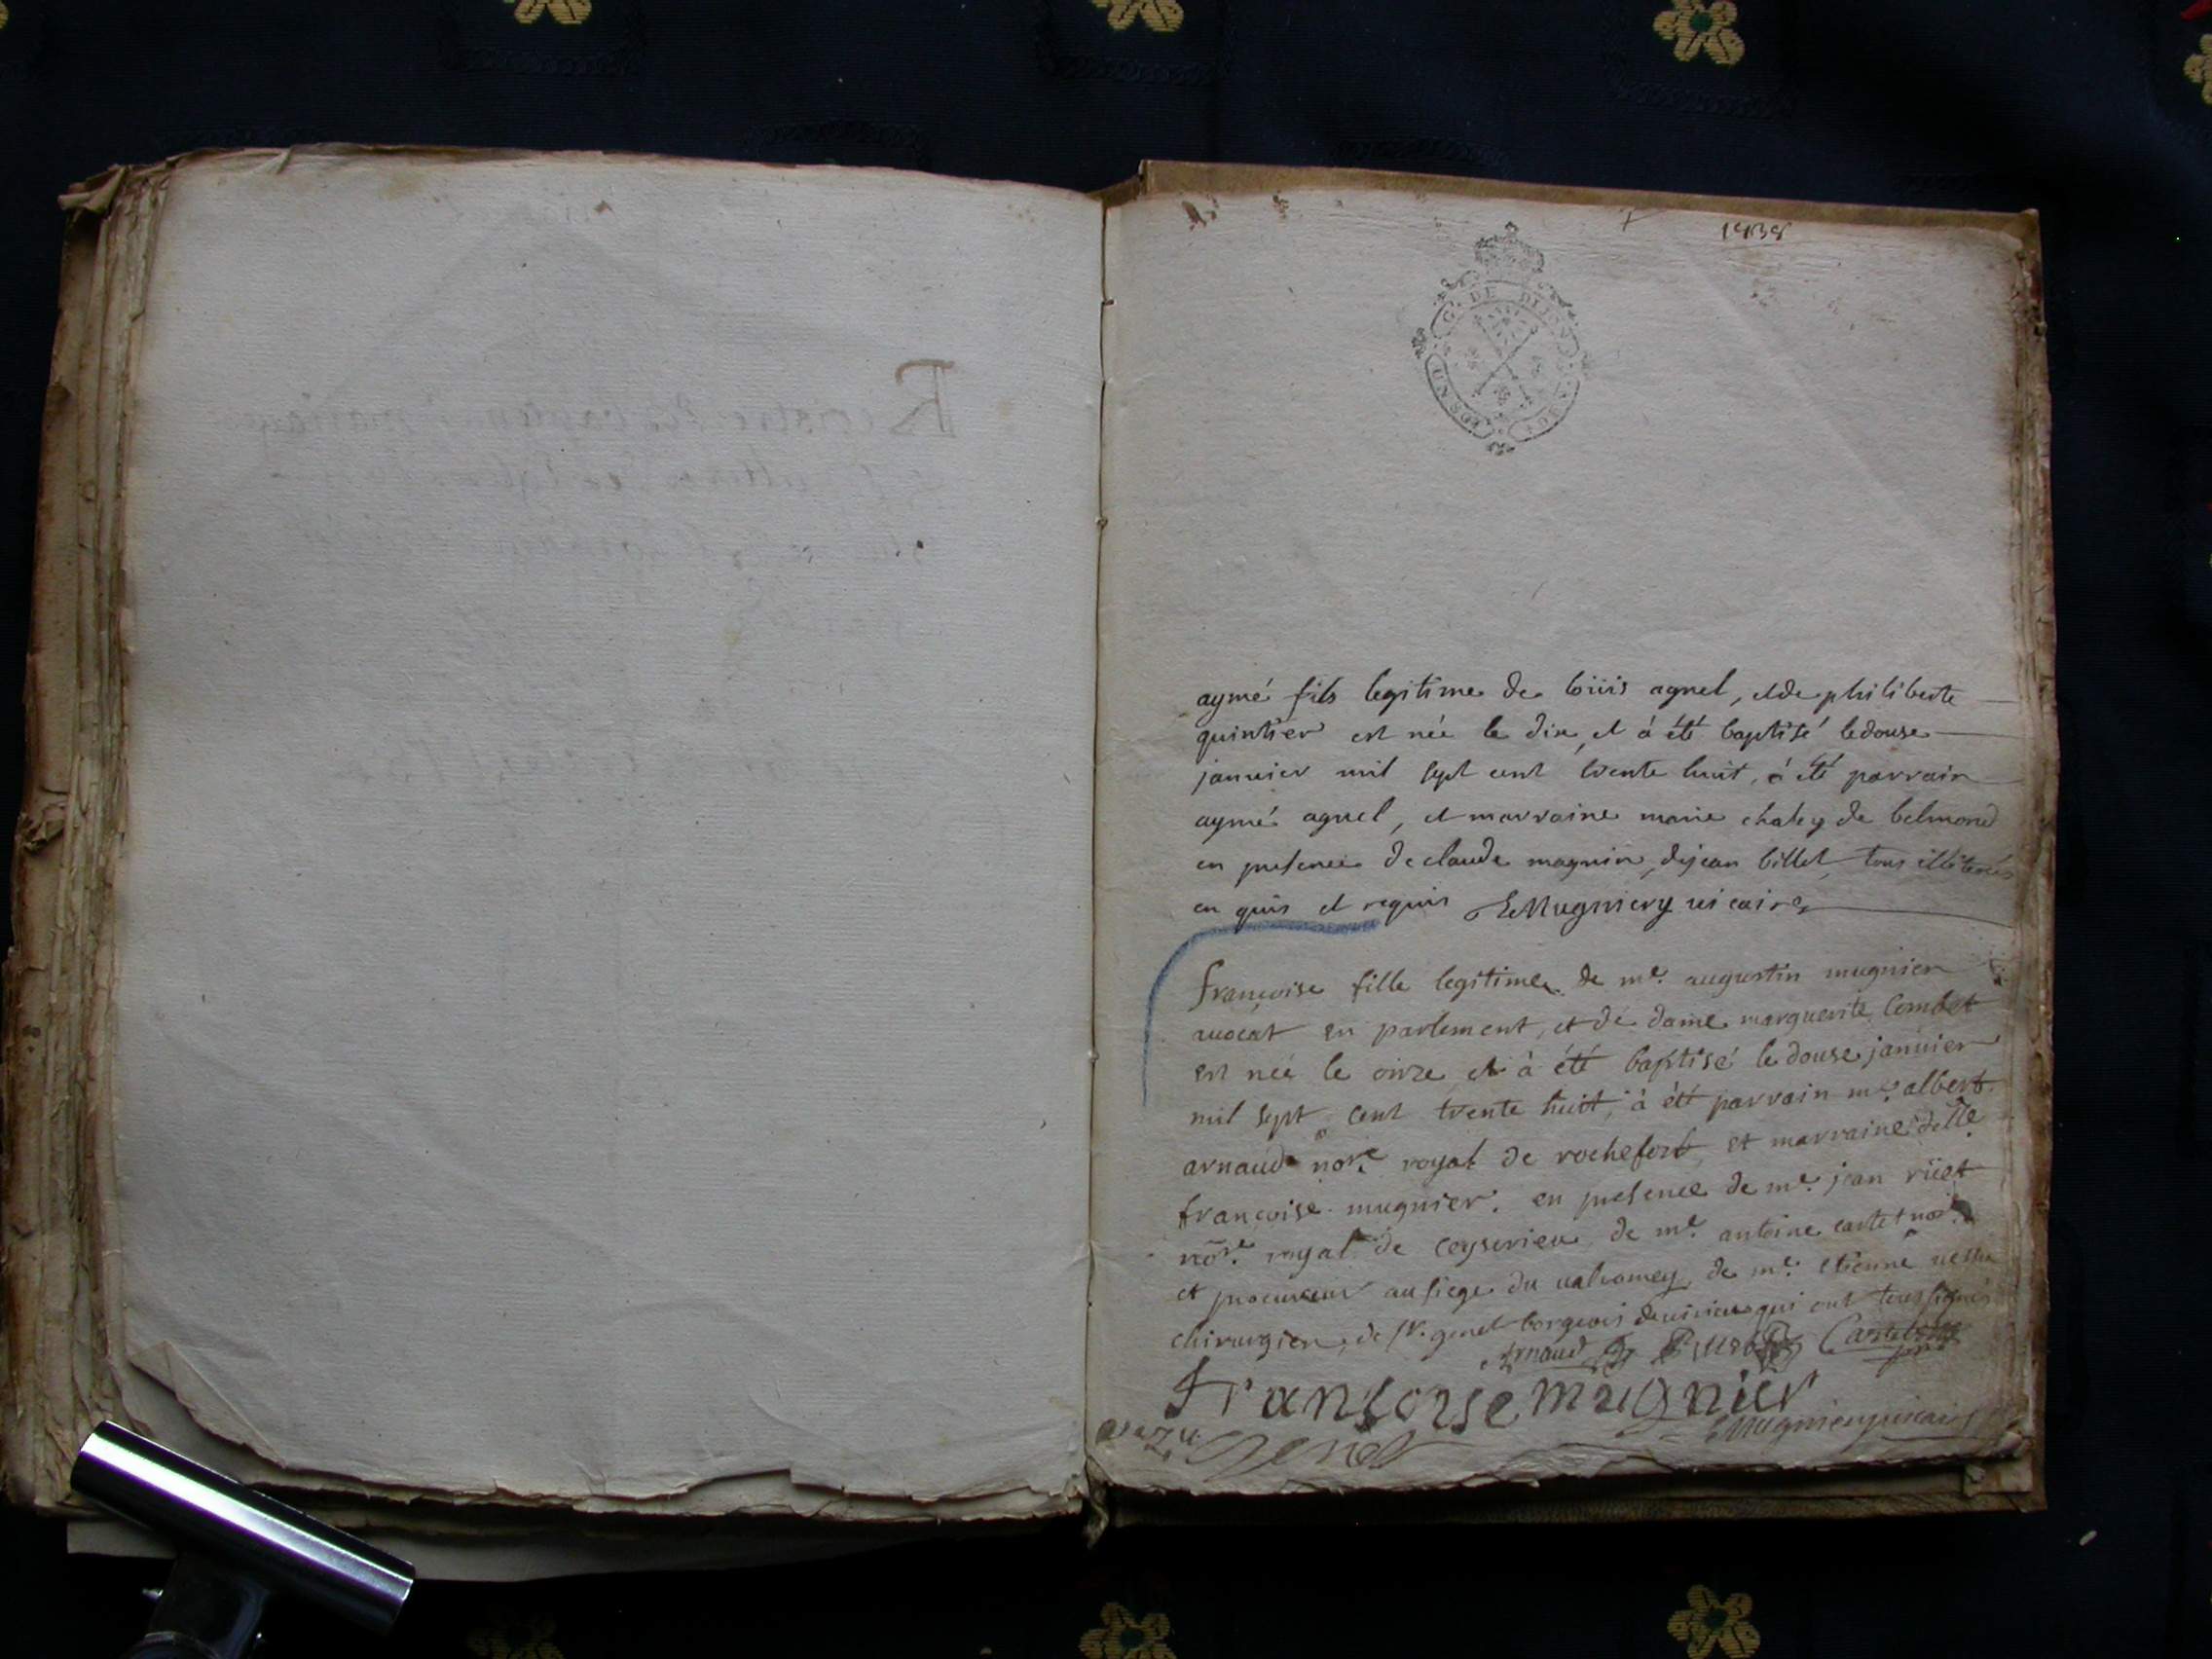 1738
G. DE DIJON
UN SOL
aymé fils legitime de loüis agnel, et de philiberte
quintier est née le dix, et à été baptisé le douse
janvier mil sept cent trente huit, à été parrain
aymé agnel, et marraine marie chaley de belmond
en presence de claude magnin, de jean billet, tous illiterés
en quis et requis Mugniery vicaire
françoise fille legitime de me. augustin mugnier
avocat en parlement, et de dame marguerite Combet
est née le onze et à été baptisé le douse janvier
mil sept cent trente huit, à été parrain me. albert
arnaud nore. royal de rochefort, et marraine delle
françoise mugnier. en presence de me. jean rüet
nore. royal de ceyserieu, de me. antoine cartet nore.
et procureur au siege du valromey, de me. etienne
chirurgien, de sr. genet borgeois de virieu qui ont tous signés
Arnaud Cartet
Fransoise mugnier
Mugniery vicaire
Genet